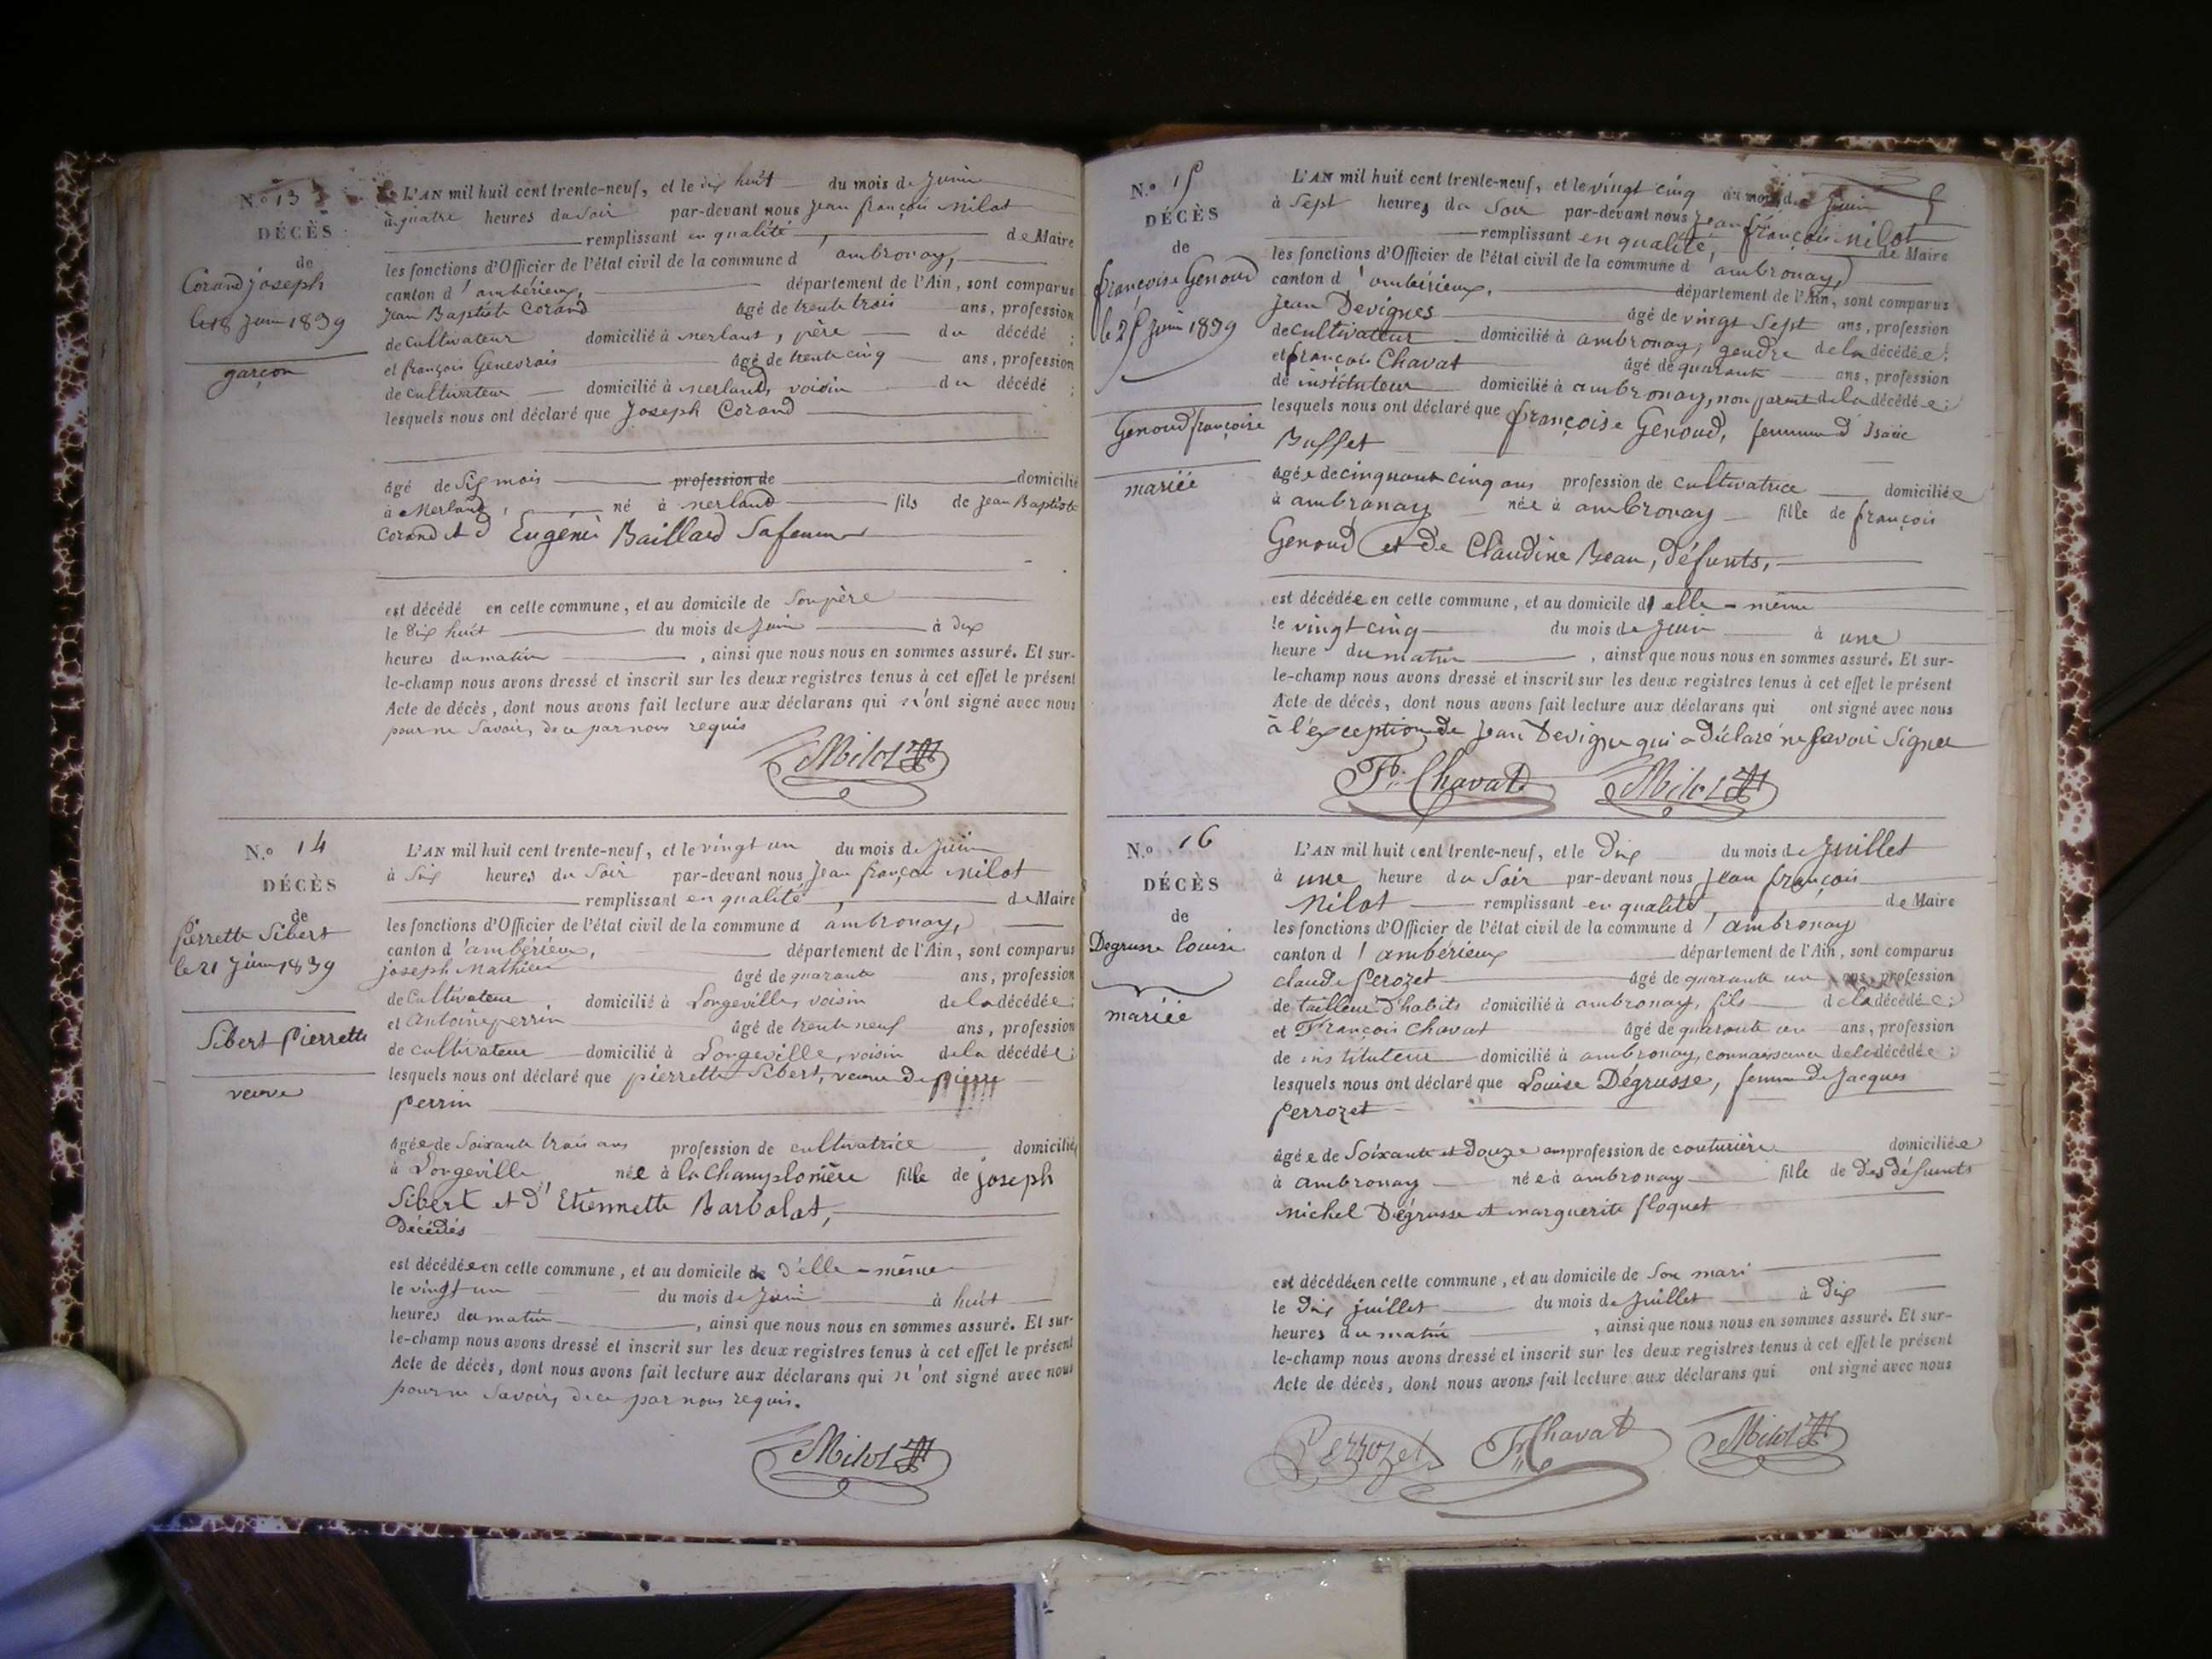 N.o 13
DÉCÈS
de
Corand Joseph
le 18 Juin 1839
garçon
L'AN mil huit cent trente-neuf, et le dix huit du mois de Juin
à quatre heures du Soir par-devant nous Jean françois Milot
remplissant en qualité, de Maire
les fonctions d'Officier de l'état civil de la commune d'ambronay,
canton d'ambérieux, département de l'Ain, sont comparus
Jean Baptiste Corand âgé de trente trois ans, profession
de Cultivateur domicilié à Merland, père du décédé ;
et françois Genevrais âgé de trente cinq ans, profession
de cultivateur domicilié à Merland, voisin du décédé ;
lesquels nous ont déclaré que Joseph Corand
âgé de Six mois profession de domicilié
à Merland, né à Merland fils de Jean Baptiste
Corand et d'Eugénie Baillard Sa femme
est décédé en cette commune, et au domicile de Son père
le Dix huit du mois de Juin à dix
heures du matin, ainsi que nous nous en sommes assuré. Et sur-
le-champ nous avons dressé et inscrit sur les deux registres tenus à cet effet le présent
Acte de décès, dont nous avons fait lecture aux déclarans qui n'ont signé avec nous
pour ne Savoir, de ce par nous requis
Milot
N.o 14
DÉCÈS
de
Pierrette Sibert
le 21 Juin 1839
Sibert Pierrette
veuve
L'AN mil huit cent trente-neuf, et le vingt un du mois de Juin
à Six heures du Soir par-devant nous Jean françois Milot
remplissant en qualité, de Maire
les fonctions d'Officier de l'état civil de la commune d'ambronay,
canton d'ambérieux, département de l'Ain, sont comparus
joseph Mathieu âgé de quarante ans, profession
de Cultivateur, domicilié à Longeville, voisin de la décédée ;
et Antoine perrin âgé de trente neuf ans, profession
de cultivateur domicilié à Longeville, voisin de la décédée ;
lesquels nous ont déclaré que pierrette Sibert, veuve de pierre
perrin
âgée de Soixante trois ans profession de cultivatrice domiciliée
à Longeville née à la Champlonière fille de joseph
Sibert et d'Etiennette Barbolat,
Décédés
est décédée en cette commune, et au domicile de D'elle-même
le vingt un du mois de Juin à huit
heures du matin, ainsi que nous nous en sommes assuré. Et sur-
le-champ nous avons dressé et inscrit sur les deux registres tenus à cet effet le présent
Acte de décès, dont nous avons fait lecture aux déclarans qui n'ont signé avec nous
pour ne Savoir, de ce par nous requis.
Milot
N.o 15
DÉCÈS
de
françoise Genoud
le 25 Juin 1839
Genoud françoise
mariée
L'AN mil huit cent trente-neuf, et le vingt cinq du mois de Juin
à Sept heures du Soir par-devant nous Jean françois Milot
remplissant en qualité, de Maire
les fonctions d'Officier de l'état civil de la commune d'ambronay,
canton d'ambérieux, département de l'Ain, sont comparus
Jean Devignes âgé de vingt Sept ans, profession
de cultivateur domicilié à ambronay, gendre de la décédée ;
et françois Chavat âgé de quarante ans, profession
de instituteur domicilié à ambronay, non parent de la décédée ;
lesquels nous ont déclaré que françoise Genoud, femme d'Isaïe
Buffet
âgée de cinquante cinq ans profession de cultivatrice domiciliée
à ambronay née à ambronay fille de françois
Genoud et de Claudine Beau, défunts,
est décédée en cette commune, et au domicile d'elle-même
le vingt cinq du mois de Juin à une
heure du matin, ainsi que nous nous en sommes assuré. Et sur-
le-champ nous avons dressé et inscrit sur les deux registres tenus à cet effet le présent
Acte de décès, dont nous avons fait lecture aux déclarans qui ont signé avec nous
à l'exception de Jean Devigne qui a Déclaré ne Savoir Signer
Fs. Chavat Milot
N.o 16
DÉCÈS
de
Degrusse Louise
mariée
L'AN mil huit cent trente-neuf, et le Dix du mois de Juillet
à une heure du Soir par-devant nous Jean françois
Milot remplissant en qualité, de Maire
les fonctions d'Officier de l'état civil de la commune d'ambronay
canton d'ambérieux département de l'Ain, sont comparus
claude Perozet âgé de quarante un ans, profession
de tailleur d'habits domicilié à ambronay, fils de la décédée ;
et François Chavat âgé de quarante un ans, profession
de instituteur domicilié à ambronay, connaissance de la décédée ;
lesquels nous ont déclaré que Louise Dégrusse, femme de Jacques
Perrozet
âgée de Soixante et Douze ans profession de couturière domiciliée
à ambronay née à ambronay fille de des défunts
Michel Dégrusse et Marguerite floquet
est décédée en cette commune, et au domicile de Son mari
le Dix juillet du mois de Juillet à Dix
heures du matin, ainsi que nous nous en sommes assuré. Et sur-
le-champ nous avons dressé et inscrit sur les deux registres tenus à cet effet le présent
Acte de décès, dont nous avons fait lecture aux déclarans qui ont signé avec nous
Perrozet Fs Chavat Milot